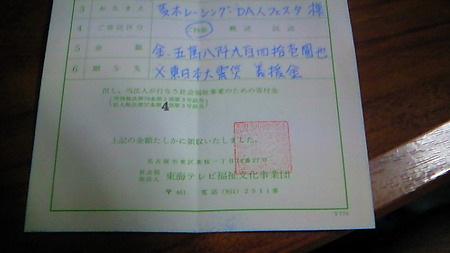 3 お な ま え 菱木レーシング・DA人フェスタ 様
4 ご寄託区分 ご持参 郵送 託送
5 金 額 金.五萬八阡九百四拾壱圓也
6 贈 り 先 ×東日本大震災 義援金
但し、当法人が行なう社会福祉事業のための寄付金
4
上記の金額たしかに領収いたしました。
社会福祉法人 東海テレビ福祉文化事業団
〒461 電話 (951) 2511番